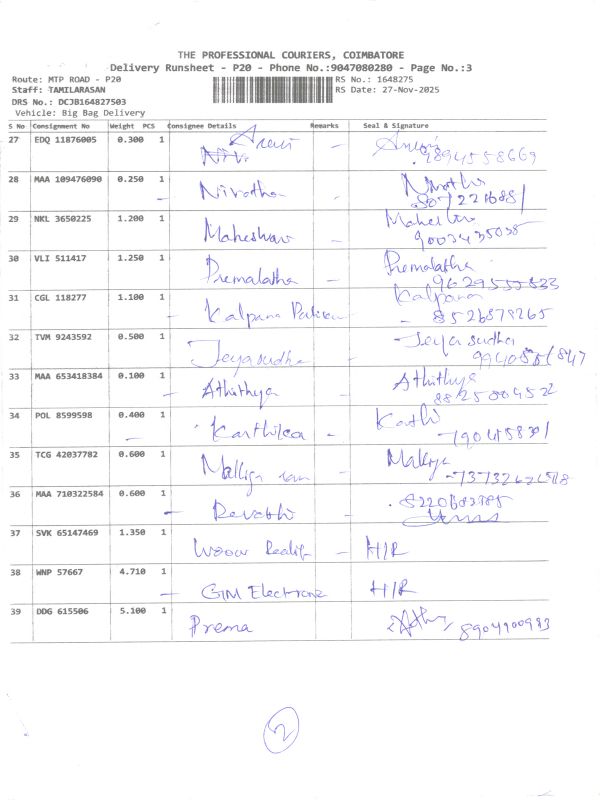 THE PROFESSIONAL COURIERS, COIMBATORE
Delivery Runsheet - P20 - Phone No.:9047080280 - Page No.:3
Route: MTP ROAD - P20 RS No.: 1648275
Staff: TAMILARASAN RS Date: 27-Nov-2025
DRS No.: DCJB164827503
Vehicle: Big Bag Delivery
S No Consignment No Weight PCS Consignee Details Remarks Seal & Signature
27 EDQ 11876005 0.300 1 -
28 MAA 109476090 0.250 1 - Nivetha -
29 NKL 3650225 1.200 1 Maheshwar -
30 VLI 511417 1.250 1 Premalatha - Premalatha
9629555833
31 CGL 118277 1.100 1 - Kalpana - Kalpana
- 8526878265
32 TVM 9243592 0.500 1 Jeyasudha - Jeyasudha
33 MAA 653418384 0.100 1 - Athithya - Athithya
34 POL 8599598 0.400 1 - Karthikea - Karthi
35 TCG 42037782 0.600 1 -
36 MAA 710322584 0.600 1 - Revathi -
37 SVK 65147469 1.350 1 - H/R
38 WNP 57667 4.710 1 - GM Electronz H/R
39 DDG 615506 5.100 1 Prema 8904900983
2